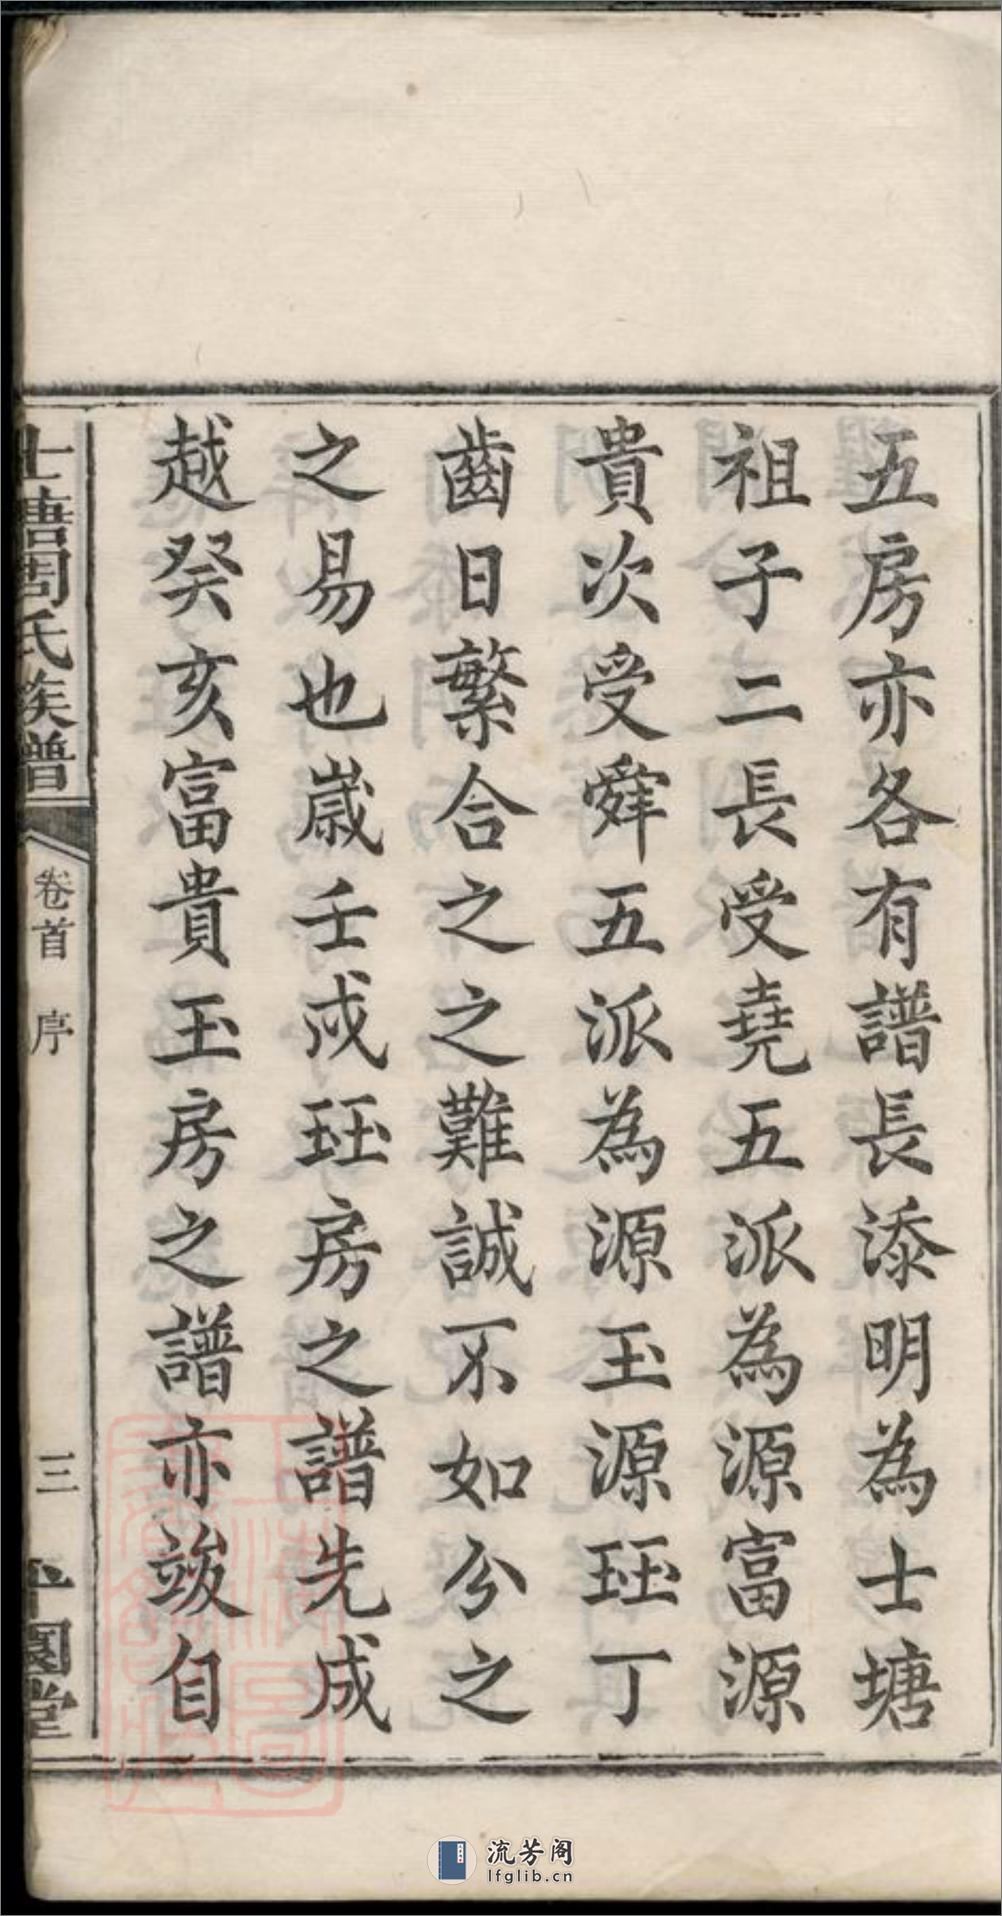 五房亦各有譜長添明為士塘
祖子二長受堯五派為源富源
貴次受舜五派為源玉源珏丁
齒日繁合之之難誠不如分之
之易也歲壬戌珏房之譜先成
越癸亥富貴玉房之譜亦竣自
士塘周氏族譜
卷首 序
三
園堂
流芳阁
lfglib.cn